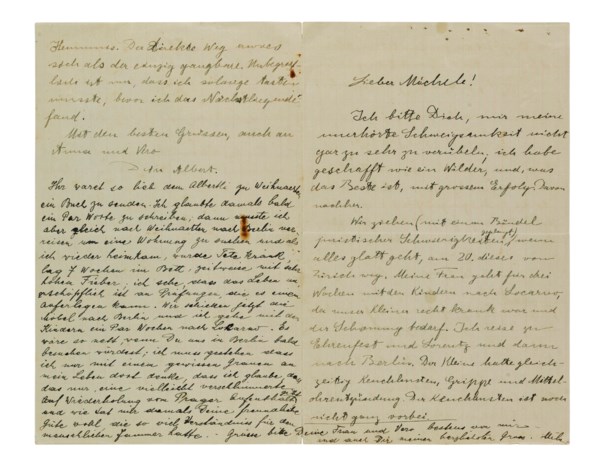 Lieber Michele!
Ich bitte Dich, mir meine
unerhörte Schweigsamkeit nicht
gar zu sehr zu verübeln; ich habe
geschafft wie ein Wilder, und, was
das Beste ist, mit grossem Erfolg. Davon
nachher.
Wir gehen (mit einem Bündel
juristischer Schwierigkeiten), wenn
alles glatt geht, am 20. dieses von
Zürich weg. Meine Frau geht für drei
Wochen mit den Kindern nach Locarno,
da unser Kleines recht krank war und
der Schonung bedarf. Ich reise zu
Ehrenfest und Lorentz und dann
nach Berlin. Der Kleine hatte gleich-
zeitig Keuchhusten, Grippe und Mittel-
ohrentzündung. Der Keuchhusten ist noch
nicht ganz vorbei.
Der direkte Weg erwies
sich als der einzig gangbare. Unbegreif-
lich ist nur, dass ich solange tasten
musste, bevor ich das Nächstliegende
fand.
Mit den besten Grüssen, auch an
Anna und Vero
Dein Albert.
Ihr wart so lieb dem Albertli zu Weihnachten
ein Buch zu senden. Ich glaubte damals bald
ein Par Worte zu schreiben, dann musste ich
aber gleich nach Weihnachten nach Berlin ver-
reisen um eine Wohnung zu suchen und als
ich wieder heimkam, wurde Tete krank,
lag 7 Wochen im Bett, zeitweise mit sehr
hohem Fieber, ich sehe, dass das Leben un-
erschöpflich ist an Prüfungen die es einem
auferlegen kann. Wir schicken jetzt die
Möbel nach Berlin und ich gehe mit den
Kindern ein Par Wochen nach Locarno. Es
wäre so nett, wenn Du uns in Berlin bald
besuchen würdest; ich muss gestehen dass
ich nur mit einem gewissen Grauen an
mein Leben dort denke, dass ich glaube, dass
das nur eine vielleicht verschlimmerte
Wiederholung vom Prager Aufenthalt
und wie tat mir damals Deine freundliche
Güte wohl die so viel Verständniss für den
menschlichen Jammer hatte. Grüsse bitte Deine Frau und Vero bestens von mir
und auch Dir meinen herzlichsten Gruss.